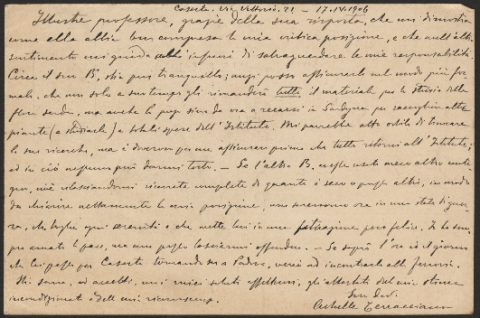 Caserta. Via Vittorio. 21 - 17. IV. 1906
Illustre professore, grazie della sua risposta, che mi dimostra
come ella abbia ben compreso la mia critica posizione, e che nell'altri
sentimenti mi guida infuori di salvaguardare le mie responsabilità.
Circa il sur B, stia pur tranquillo; anzi posso assicurarla nel modo più for-
male, che non solo a suo tempo gli rimanderò tutto il materiale per lo studio della
flora sarda, ma anche lo pago se ne va a recarsi in Sardegna per raccogliere altre
piante (a studiarle) a totali spese dell'Istituto. Mi parrebbe atto ostile di troncare
le sue ricerche, ma è doveroso per me assicurare prima che tutto ritorni all'Istituto;
ed in ciò nessuno può darmi torto. - Se l'altro B. avesse usato meco altro conte-
gno, cioè rilasciandomi ricevute complete di quanto è suo e presso altri, in modo
da chiarire nettamente la mia posizione, non saremmo ora in uno stato di guer-
ra, che toglie ogni serenità e che mette lui in una situazione poco felice. Io ho sem-
pre amato la pace, ma non posso lasciarmi offendere. - Se saprò l'ora ed il giorno
che Lei passa per Caserta tornando a Padova, verrò ad incontrarla alla ferrovia.
Stia sano, ed accetti, coi miei saluti affettuosi, gli attestati del mio
incondizionata della mia riconoscenza.
Suo dev.
Achille Terracciano